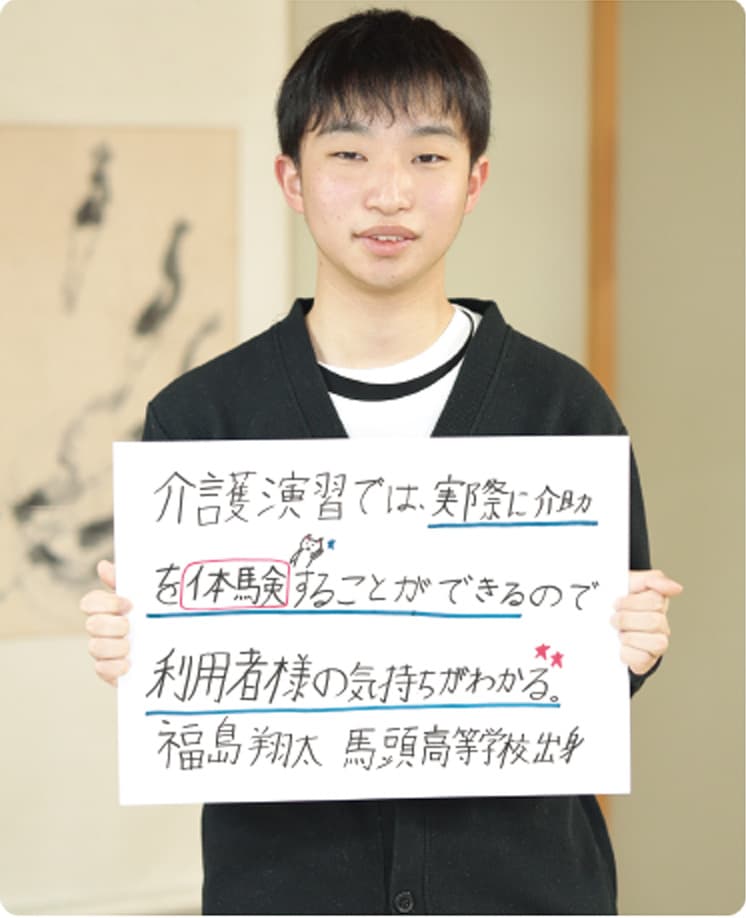 介護演習では、実際に介助
を体験することができるので
利用者様の気持ちがわかる。
福島翔太 馬頭高等学校出身